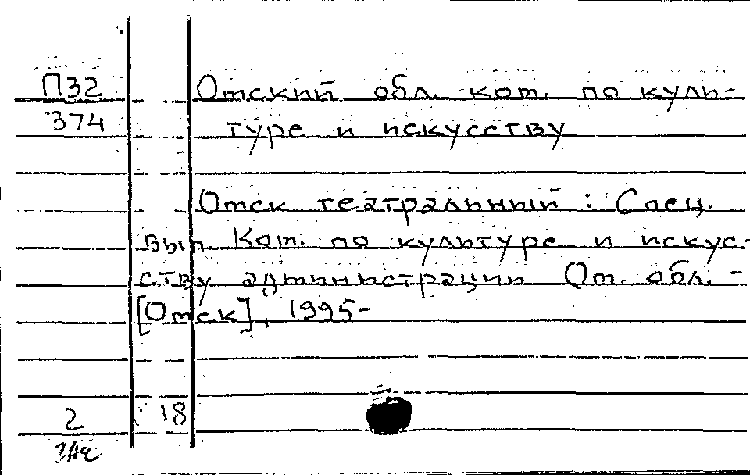 П32
374
Омский обл. ком. по куль-
туре и искусству
Омск театральный : Спец.
вып. Ком. по культуре и искус-
ству администрации Ом. обл. -
[Омск], 1995-
2
18